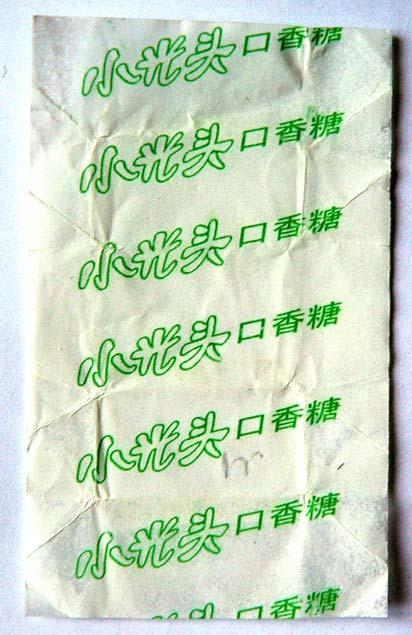 小光头口香糖
小光头口香糖
小光头口香糖
小光头口香糖
小光头口香糖
小光头口香糖
口香糖